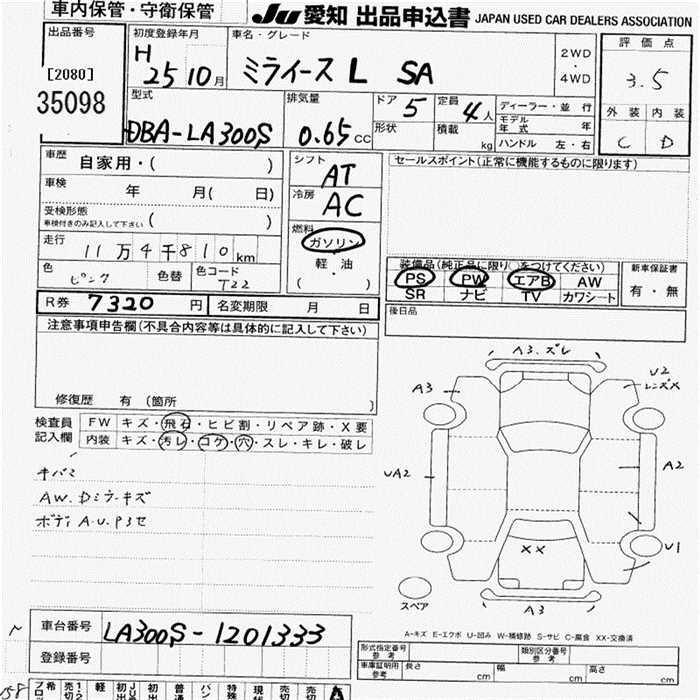 車内保管・守衛保管
JU 愛知 出品申込書 JAPAN USED CAR DEALERS ASSOCIATION
出品番号
[2080]
35098
初度登録年月
H 25 10 月
車名・グレード
ミライース L SA
2WD
・
4WD
評価点
3.5
外装 内装
C D
型式
DBA-LA300S
排気量
0.65 CC
ドア 5
定員 4 人
形状
積載 kg
ディーラー・並行
モデル年式 年
ハンドル 左・右
車歴 自家用・( )
車検 年 月( 日)
受検形態
車検付きのみ記入して下さい ( )
走行 11万4千810 km
色 ピンク 色替
色コード T22
シフト
AT
冷房
AC
燃料
ガソリン
軽・油
( )
セールスポイント(正常に機能するものに限ります)
装備品(純正品に限り○をつけてください)
PS PW エアB AW
SR ナビ TV カワシート
新車保証書
有・無
後日品
R券 7320 円
名変期限 月 日
注意事項申告欄(不具合内容等は具体的に記入して下さい)
修復歴 有 (箇所 )
検査員
記入欄
FW キズ・飛石・ヒビ割・リペア跡・X要
内装 キズ・汚レ・コゲ・穴・スレ・キレ・破レ
キバミ
AW. Dミラーキズ
ボディA.U.Pヨセ
A3.ズレ
A3
U2
レンズX
UA2
A2
XX
U1
スペア
A3
A-キズ E-エクボ U-凹み W-補修跡 S-サビ C-腐食 XX-交換済
車台番号 LA300S-1201333
登録番号
型式指定番号
参考
類別区分番号
参考
車庫証明用
参考
長さ cm
幅 cm
高さ cm
158
希
売切
1・2
軽
初出
JU
初出
普通
バン
特殊
現状
売切
売切
A